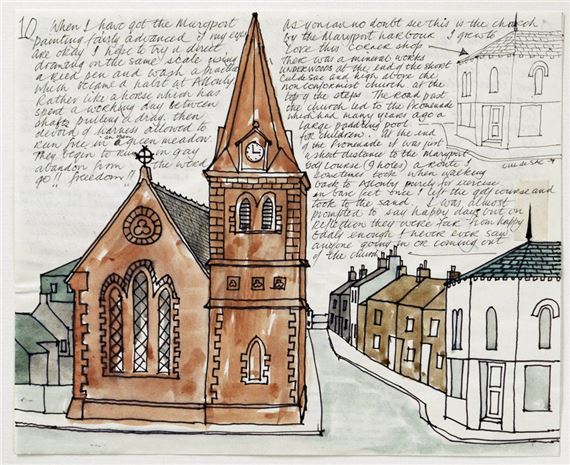 10
When I have got the Maryport
painting fairly advanced if my eyes
are okay I hope to try a direct
drawing on the same scale using
a reed pen and wash a practice
which became a habit at Allonby
Rather like a horse which has
spent a working day between
shafts pulling a dray, then
devoid of harness allowed to
run free in a green meadow.
They begin to run in gay
abandon from the word
go!! freedom!!
As you can no doubt see this is the church
by the Maryport harbour. I grew to
love this corner shop
There was a mineral works
underworks at the end of the short
culdesac and high above the
nonconformist church at the
top of the steps The road past
the church led to the Promenade
which had many years ago a
large paddling pool
for children. At the end
of the Promenade it was just
a short distance to the Maryport
Golf Course (9 holes) a route I
sometimes took when walking
back to Allonby purely for exercise
in bare feet once I left the golf course and
took to the sand. I was almost
prompted to say happy days but on
reflection they were far from happy
Oddly enough I never ever saw
anyone going in or coming out
of the church